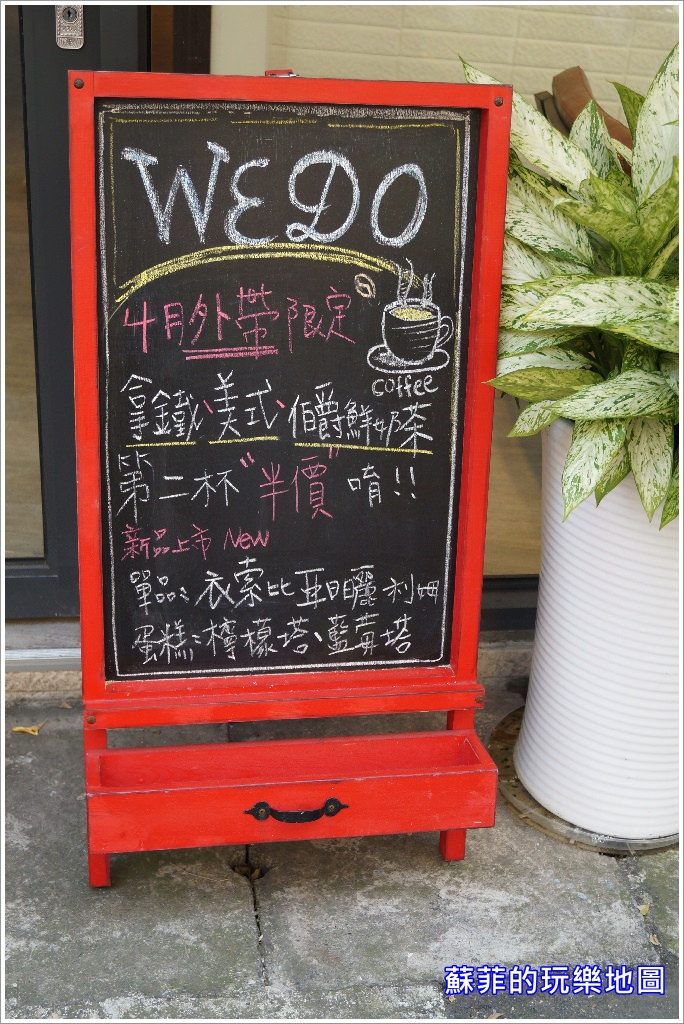 WEDO
4月外帶限定
coffee
拿鐵、美式、伯爵鮮奶茶
第二杯"半價"唷!!
新品上市 NEW
單品:衣索比亞日曬利姆
蛋糕:檸檬塔、藍莓塔
蘇菲的玩樂地圖